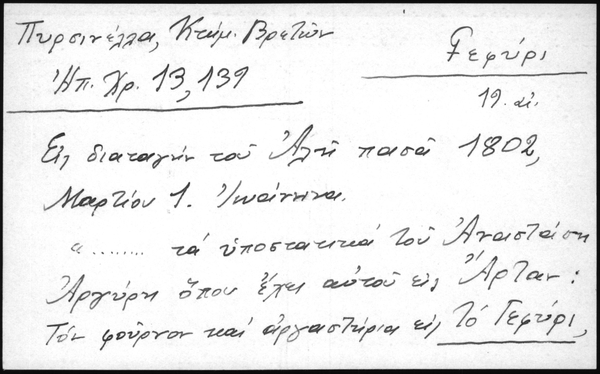 Πυρσινέλλα, Κτημ. Βρετῶν
Ἠπ. Χρ. 13, 139
Γεφύρι
19. αἰ.
Εἰς διαταγήν τοῦ Ἀλῆ πασᾶ 1802,
Μαρτίου 1. Ἰωάννινα.
"........ τά ὑποστατικά τοῦ Ἀναστάση
Ἀργύρη ὅπου ἔχει αὐτοῦ εἰς Ἄρταν:
Τόν φοῦρνον καί ἀργαστήρια εἰς τό Γεφύρι,